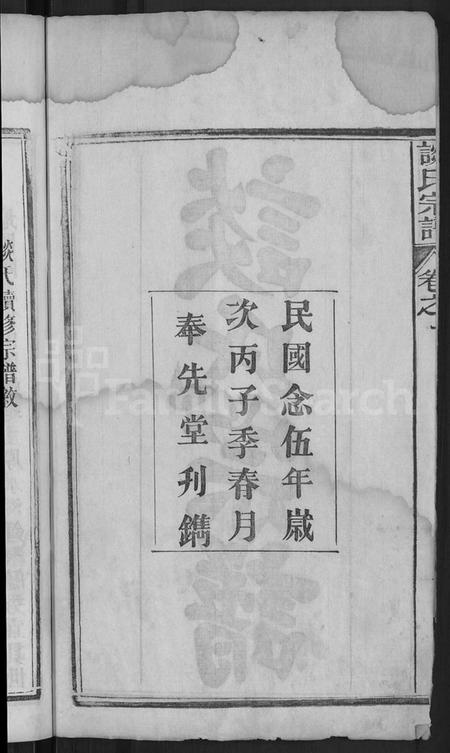 談氏宗譜
卷之
民國念伍年歲
次丙子季春月
奉先堂刋鐫
談氏續修宗譜敘
FamilySearch